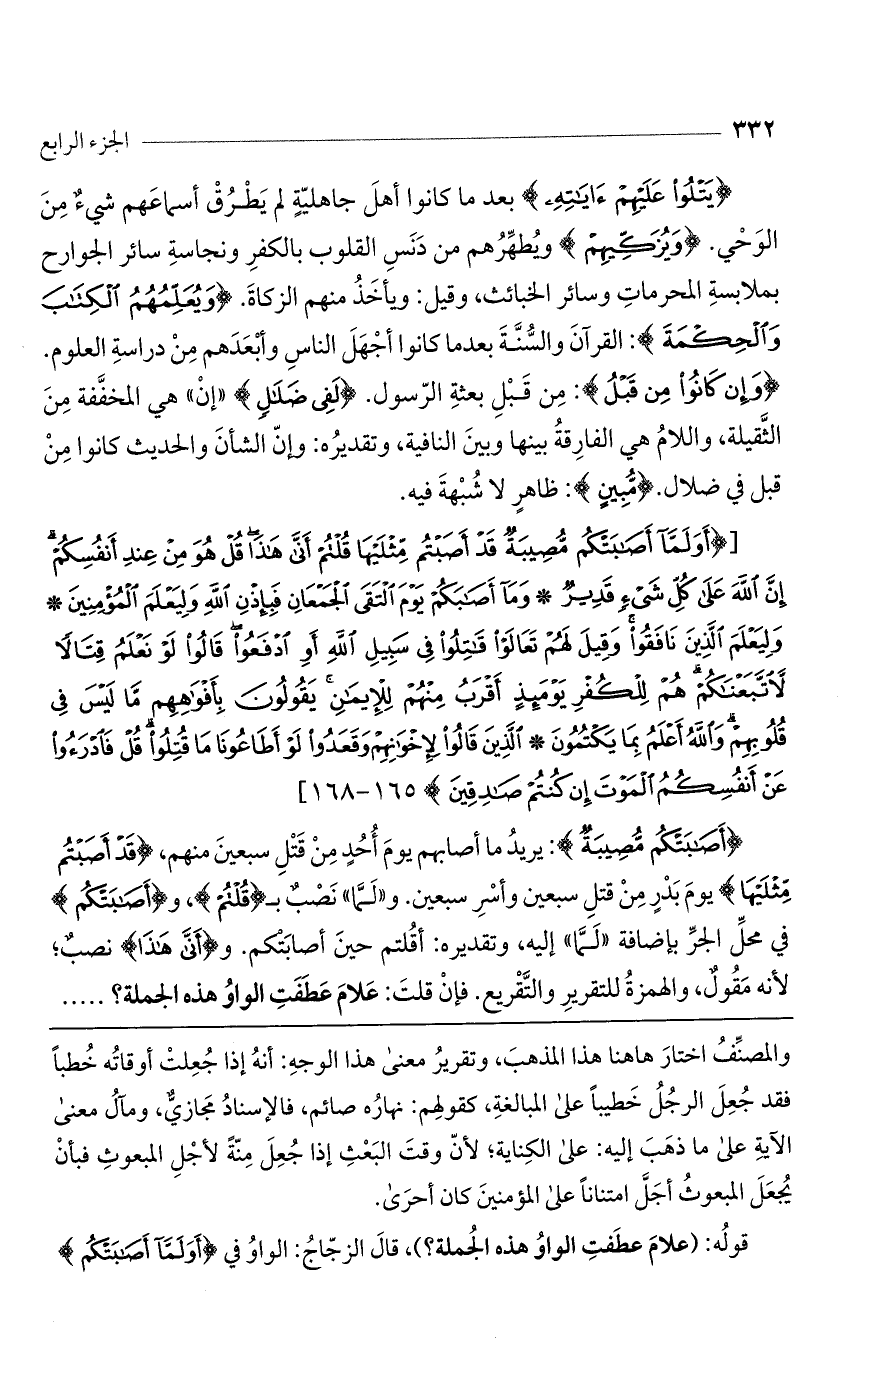 ٣٣٢ الجزء الرابع
﴿يَتْلُوا۟ عَلَيْهِمْ ءَايَـٰتِهِۦ﴾ بعد ما كانوا أهلَ جاهليّةٍ لم يَطْرُقْ أسماعَهم شيءٌ مِنَ
الوَحْي. ﴿وَيُزَكِّيهِمْ﴾ ويُطهِّرُهم من دَنَسِ القلوب بالكفرِ ونجاسةِ سائر الجوارح
بملابسةِ المحرماتِ وسائر الخبائث، وقيل: ويأخَذُ منهم الزكاةَ. ﴿وَيُعَلِّمُهُمُ ٱلْكِتَـٰبَ
وَٱلْحِكْمَةَ﴾: القرآنَ والسُّنَّةَ بعدما كانوا أجْهَلَ الناسِ وأبْعَدَهم مِنْ دراسةِ العلوم.
﴿وَإِن كَانُوا۟ مِن قَبْلُ﴾: مِن قَبْلِ بعثةِ الرّسول. ﴿لَفِى ضَلَـٰلٍ﴾ «إنْ» هي المخفَّفة مِنَ
الثَّقيلة، واللامُ هي الفارِقةُ بينها وبينَ النافية، وتقديرُه: وإنّ الشأنَ والحديث كانوا مِنْ
قبل في ضلال. ﴿مُّبِينٍ﴾: ظاهرٍ لا شُبْهةَ فيه.
[﴿أَوَلَمَّآ أَصَـٰبَتْكُم مُّصِيبَةٌ قَدْ أَصَبْتُم مِّثْلَيْهَا قُلْتُمْ أَنَّىٰ هَـٰذَا ۖ قُلْ هُوَ مِنْ عِندِ أَنفُسِكُمْ ۗ
إِنَّ ٱللَّهَ عَلَىٰ كُلِّ شَىْءٍ قَدِيرٌ * وَمَآ أَصَـٰبَكُمْ يَوْمَ ٱلْتَقَى ٱلْجَمْعَانِ فَبِإِذْنِ ٱللَّهِ وَلِيَعْلَمَ ٱلْمُؤْمِنِينَ *
وَلِيَعْلَمَ ٱلَّذِينَ نَافَقُوا۟ ۚ وَقِيلَ لَهُمْ تَعَالَوْا۟ قَـٰتِلُوا۟ فِى سَبِيلِ ٱللَّهِ أَوِ ٱدْفَعُوا۟ ۖ قَالُوا۟ لَوْ نَعْلَمُ قِتَالًا
لَّٱتَّبَعْنَـٰكُمْ ۗ هُمْ لِلْكُفْرِ يَوْمَئِذٍ أَقْرَبُ مِنْهُمْ لِلْإِيمَـٰنِ ۚ يَقُولُونَ بِأَفْوَٰهِهِم مَّا لَيْسَ فِى
قُلُوبِهِمْ ۗ وَٱللَّهُ أَعْلَمُ بِمَا يَكْتُمُونَ * ٱلَّذِينَ قَالُوا۟ لِإِخْوَٰنِهِمْ وَقَعَدُوا۟ لَوْ أَطَاعُونَا مَا قُتِلُوا۟ ۗ قُلْ فَٱدْرَءُوا۟
عَنْ أَنفُسِكُمُ ٱلْمَوْتَ إِن كُنتُمْ صَـٰدِقِينَ﴾ ١٦٥-١٦٨]
﴿أَصَـٰبَتْكُم مُّصِيبَةٌ﴾: يريدُ ما أصابهم يومَ أُحُدٍ مِنْ قَتْلِ سبعينَ منهم، ﴿قَدْ أَصَبْتُم
مِّثْلَيْهَا﴾ يومَ بَدْرٍ مِنْ قتلِ سبعين وأسْرِ سبعين. و«لَـمَّا» نَصْبٌ بـ﴿قُلْتُمْ﴾، و﴿أَصَـٰبَتْكُم﴾
في محلِّ الجرِّ بإضافة «لَـمَّا» إليه، وتقديره: أقُلتم حينَ أصابَتْكم. و﴿أَنَّىٰ هَـٰذَا﴾ نصبٌ؛
لأنه مَقُولٌ، والهمزةُ للتقريرِ والتَّقْريع. فإنْ قلتَ: عَلامَ عَطَفَتِ الواوُ هذه الجملة؟ .....
والمصنِّفُ اختارَ هاهنا هذا المذهبَ، وتقريرُ معنىٰ هذا الوجهِ: أنهُ إذا جُعِلتْ أوقاتُه خُطباً
فقد جُعِلَ الرجُلُ خَطيباً علىٰ المبالغةِ، كقولهِم: نهارُه صائم، فالإسنادُ مَجازيٌّ، ومآلُ معنىٰ
الآيةِ علىٰ ما ذهَبَ إليه: علىٰ الكِناية؛ لأنّ وقتَ البَعْثِ إذا جُعِلَ مِنّةً لأجْلِ المبعوثِ فبأنْ
يُجعَلَ المبعوثُ أجَلَّ امتناناً علىٰ المؤمنينَ كان أحرَىٰ.
قولُه: (علامَ عطَفتِ الواوُ هذه الجُملة؟)، قالَ الزجّاجُ: الواوُ في ﴿أَوَلَمَّآ أَصَـٰبَتْكُم﴾